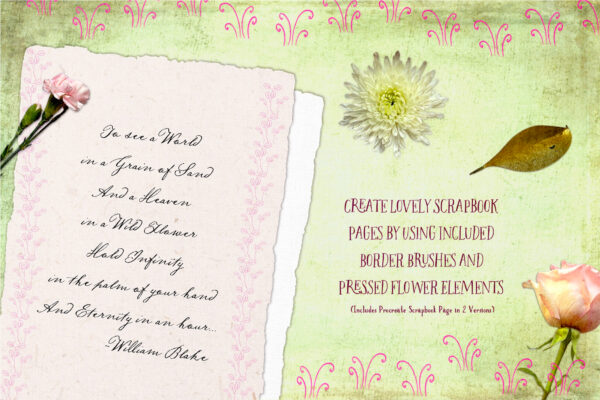 To see a World
in a Grain of Sand
And a Heaven
in a Wild Flower
Hold Infinity
in the palm of your hand
And Eternity in an hour...
-William Blake
CREATE LOVELY SCRAPBOOK
PAGES BY USING INCLUDED
BORDER BRUSHES AND
PRESSED FLOWER ELEMENTS
(Includes Procreate Scrapbook Page in 2 Versions)